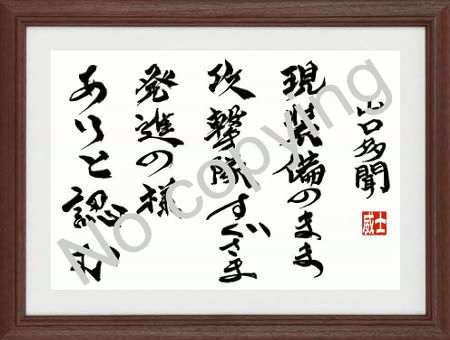 山口多聞
士威
現装備のまま
攻撃隊すぐさま
発進の様
ありと認む
No copying